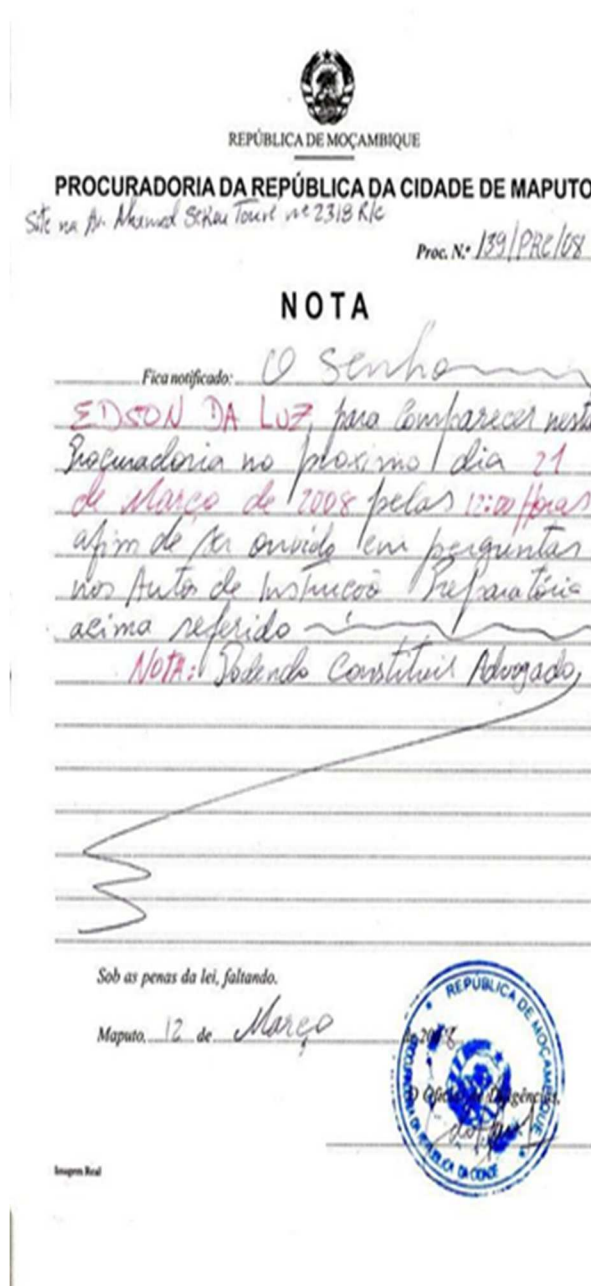 REPÚBLICA DE MOÇAMBIQUE
PROCURADORIA DA REPÚBLICA DA CIDADE DE MAPUTO
Site na Av. Ahamed Sekou Touré nº 2318 R/c
Proc. N.º 139/PRC/08
NOTA
Fica notificado: O Senhor
EDSON DA LUZ, para Comparecer nesta
Procuradoria no proximo dia 21
de Março de 2008 pelas 12:00 Horas
afim de ser ouvido em perguntas
nos Autos de Instrução Preparatória
acima referido
NOTA: Podendo Constituir Advogado,
Sob as penas da lei, faltando.
Maputo, 12 de Março de 2008
O Oficial de Diligências,
REPÚBLICA DE MOÇAMBIQUE
DA REPÚBLICA DA CIDADE
Imagem Real